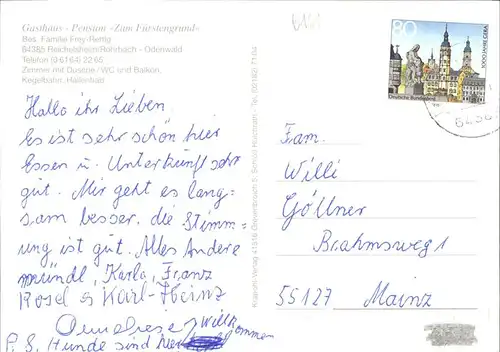 Gasthaus - Pension »Zum Fürstengrund«
Bes. Familie Frey-Rettig
64385 Reichelsheim/Rohrbach - Odenwald
Telefon (0 61 64) 22 65
Zimmer mit Dusche / WC und Balkon,
Kegelbahn, Hallenbad
80
1000 JAHRE GERA
Deutsche Bundespost
Hallo ihr Lieben
Es ist sehr schön hier
Essen u. Unterkunft sehr
gut. Mir geht es lang=
sam besser. die Stimm=
ung ist gut. Alles Andere
mündl, Karla, Franz
Rosel & Karl-Heinz
Willkommen
P. S. Hunde sind hier
Fam.
Willi
Göllner
Brahmsweg 1
55127 Mainz